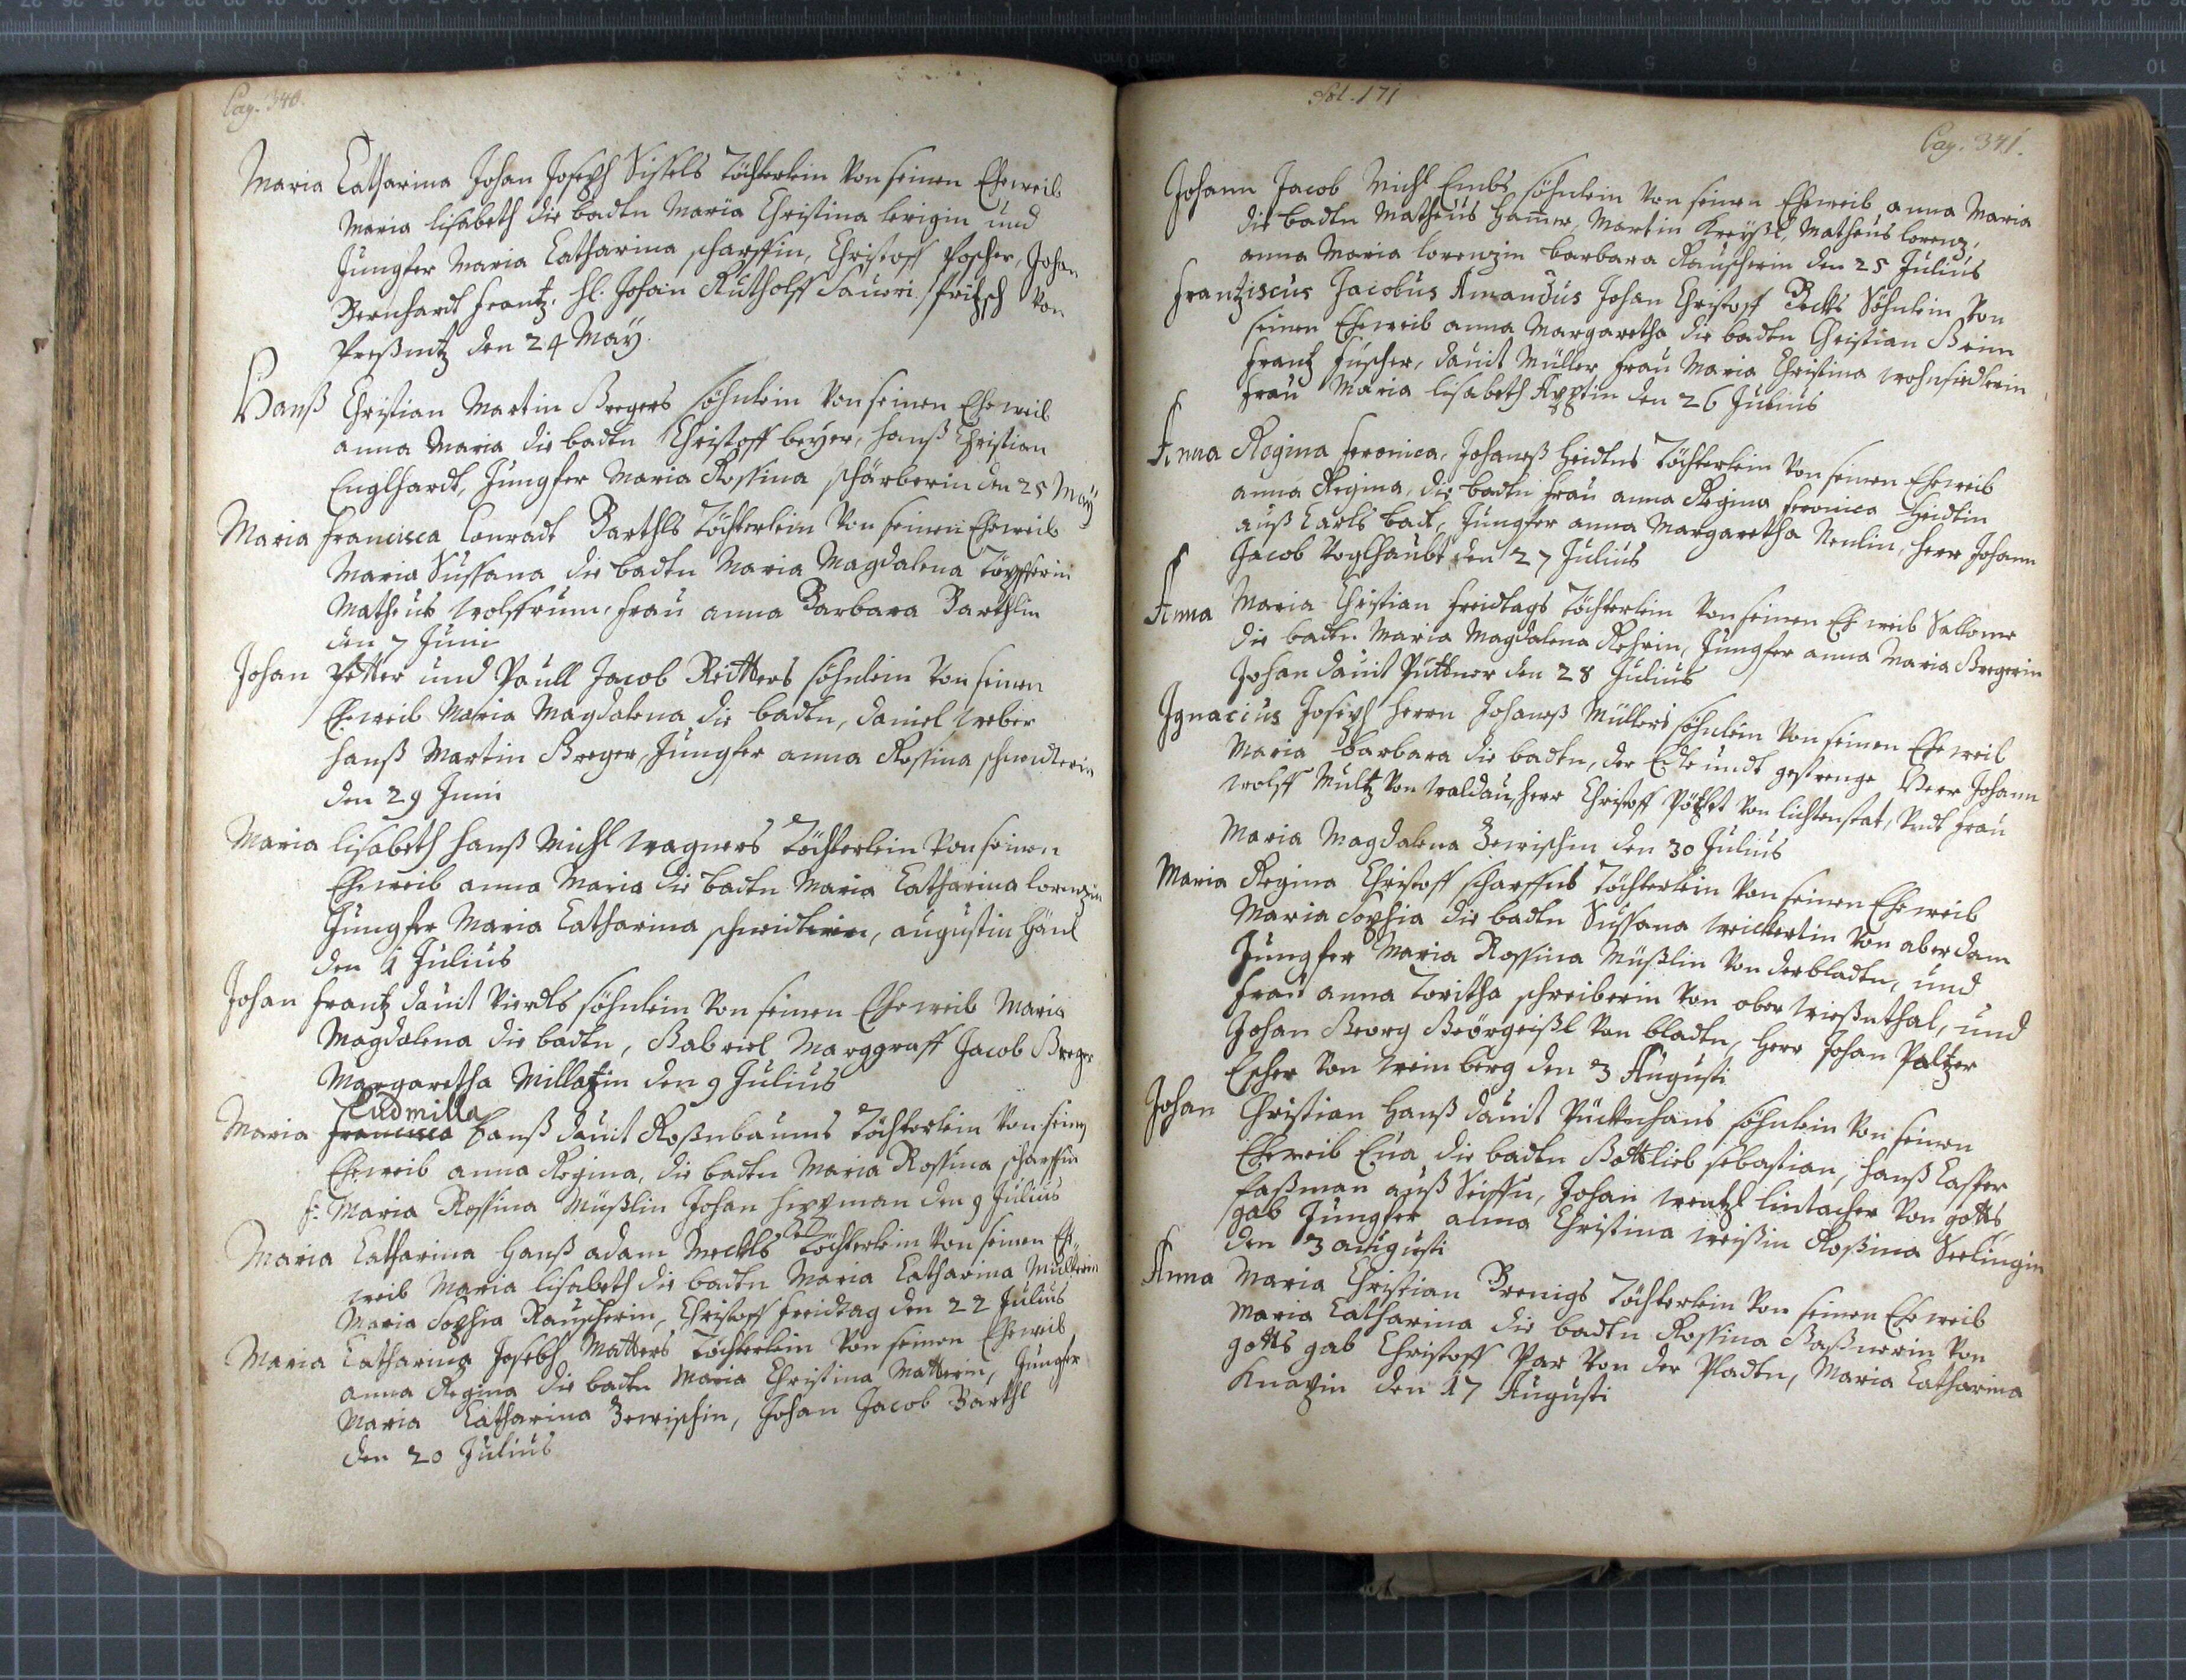 Pag. 340.
Maria Catharina Johan Joseph Sissels Töchterlein Von seinen Eheweib
Maria lisabeth die badtn Maria Christina lerigin und
Jungfer Maria Catharina scharffin, Christoff Poscher, Johan
Bernhardt frantz, Johan Rutholff fritzsch Von
Preßnitz den 24 May.
Hanß Christian Martin Gregers söhnlein Von seinen Eheweib
anna Maria die badtn Christoff beyer, hanß Christian
Englhardt, Jungfer Maria Rossina schärberin den 25 May
Maria francisca Conradt Barthls Töchterlein Von seinen Eheweib
Maria Sussana die badtn Maria Magdalena Töpfferin
Matheus wolffrum, frau anna Barbara Barthlin
den 7 Juni
Johan Petter und Paull Jacob Reitters söhnlein Von seinen
Eheweib Maria Magdalena die badtn, daniel weber
hanß Martin Greger, Jungfer anna Rossina schneidterin
den 29 Juni
Maria lisabeth hanß Michl wagners Töchterlein Von seinen
Eheweib anna Maria die badtn Maria Catharina lorenzin
Jungfer Maria Catharina schneidterin, augustin Hänl
den 1 Julius
Johan frantz dauit Vierdts söhnlein Von seinen Eheweib Maria
Magdalena die badtn, Gabriel Marggraff Jacob Greger
Margaretha Millatzin den 9 Julius
Ludmilla
Maria francisca Hanß dauit Roßnbaums Töchterlein Von seinen
Eheweib anna Regina, die badtn Maria Rossina scharffin
f: Maria Rossina Müßlin Johan hipman den 9 Julius
Maria Catharina Hanß adam Meckls Töchterlein Von seinen Ehe
weib Maria lisabeth die badtn Maria Catharina Müllerin
Maria Sophia Rauscherin, Christoff freidtag den 22 Julius
Maria Catharina Josebh Matters Töchterlein Von seinen Eheweib
anna Regina die badtn Maria Christina Matterin, Jungfer
Maria Catharina Zewischin, Johan Jacob Barthl
den 20 Julius
Fol. 171
Pag. 341.
Johann Jacob Michl Embs söhnlein Von seinen Eheweib anna Maria
die badtn Matheus Hamer, Martin Kreyßl, Matheus lorenz,
anna Maria lorenzin barbara Rauscherin den 25 Julius
frantziscus Jacobus Amandus Johan Christoff Becks Söhnlein Von
seinen Eheweib anna Margaretha die badtn Christian Grim
frantz fuscher, dauit Müller frau Maria Christina wohnsiedlerin
frau Maria lisabeth Kyptin den 26 Julius
Anna Regina feronica, Johaneß Heidtns Töchterlein Von seinen Eheweib
anna Regina, die badtn frau anna Regina feronica Heidtin
auß Carls bad, Jungfer anna Margaretha Neulin, herr Johann
Jacob Voglhaubt den 27 Julius
Anna Maria Christian freidtags Töchterlein Von seinen Eh weib Sallome
die badtn Maria Magdalena Rehrin, Jungfer anna Maria Gregerin
Johan dauit Puttner den 28 Julius
Ignacius Joseph herrn Johaneß Müllers söhnlein Von seinen Eheweib
Maria barbara die badtn, der Edle undt gestrenge Herr Johann
wolff Multz Von waldau, herr Christoff Pötzlt Von lichtenstat, Vndt frau
Maria Magdalena Zewischin den 30 Julius
Maria Regina Christoff scharffns Töchterlein Von seinen Eheweib
Maria Sophia die badtn Sussana weickertin Von aberdam
Jungfer Maria Rossina Müßlin Von derbladtn, und
frau anna Toritha schreiberin Von ober wießnthal, und
Johan Georg Geörgeißl Von bladtn, Herr Johan Paltzer
Escher Von weinberg den 3 Augusti
Johan Christian Hanß dauit Pücknhans söhnlein Von seinen
Eheweib Eua die badtn Gottlieb sebastian, hanß Casper
faßman auß Seiffn, Johan wentzl lintacher Von gotts
gab Jungfer anna Christina weißin Roßina Seelingin
den 3 augusti
Anna Maria Christian Brenigs Töchterlein Von seinen Eheweib
Maria Catharina die badtn Rossina Gaßnerin Von
gotts gab Christoff Par Von der Pladtn, Maria Catharina
Knapin den 17 Augusti